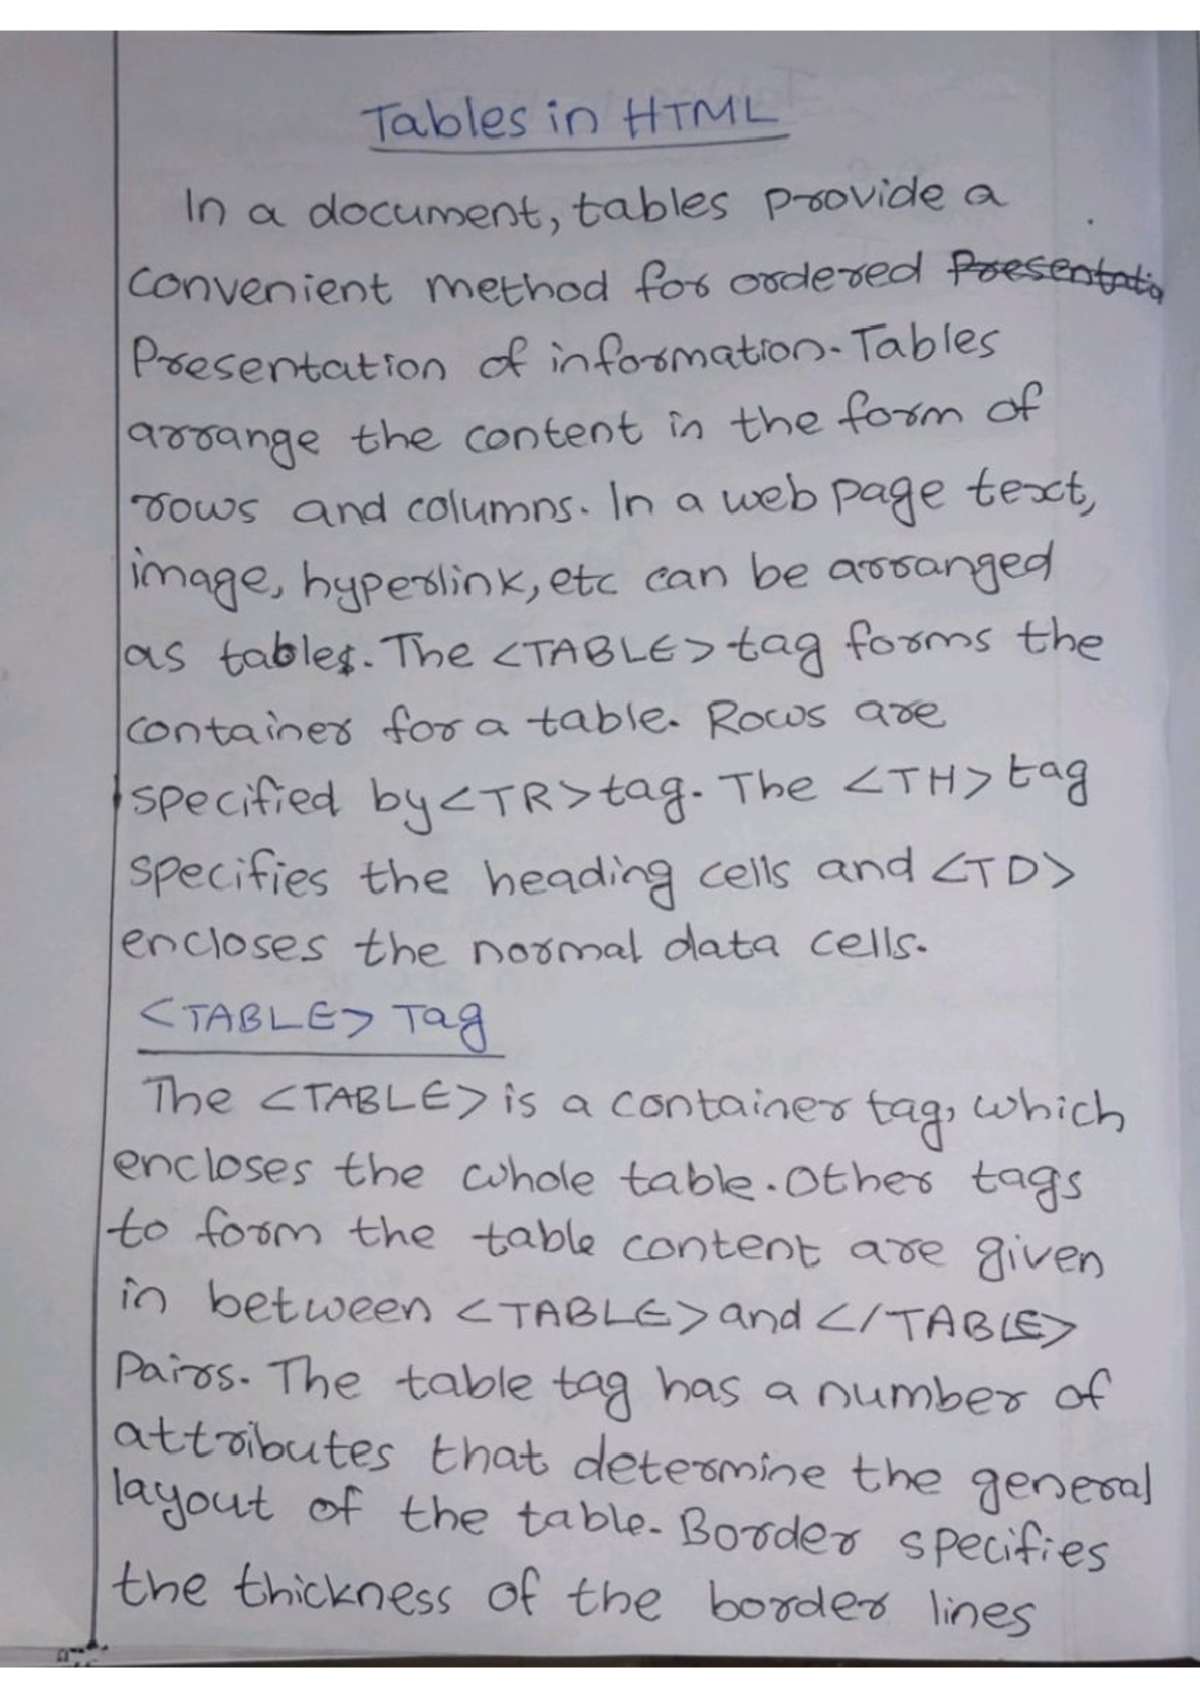 Tables in HTML
In a document, tables provide a
convenient method for ordered Presentatio
Presentation of information. Tables
arrange the content in the form of
rows and columns. In a web page text,
image, hyperlink, etc can be arranged
as tables. The <TABLE> tag forms the
container for a table. Rows are
specified by <TR> tag. The <TH> tag
specifies the heading cells and <TD>
encloses the normal data cells.
<TABLE> Tag
The <TABLE> is a container tag, which
encloses the whole table. Other tags
to form the table content are given
in between <TABLE> and </TABLE>
Pairs. The table tag has a number of
attributes that determine the general
layout of the table. Border specifies
the thickness of the border lines